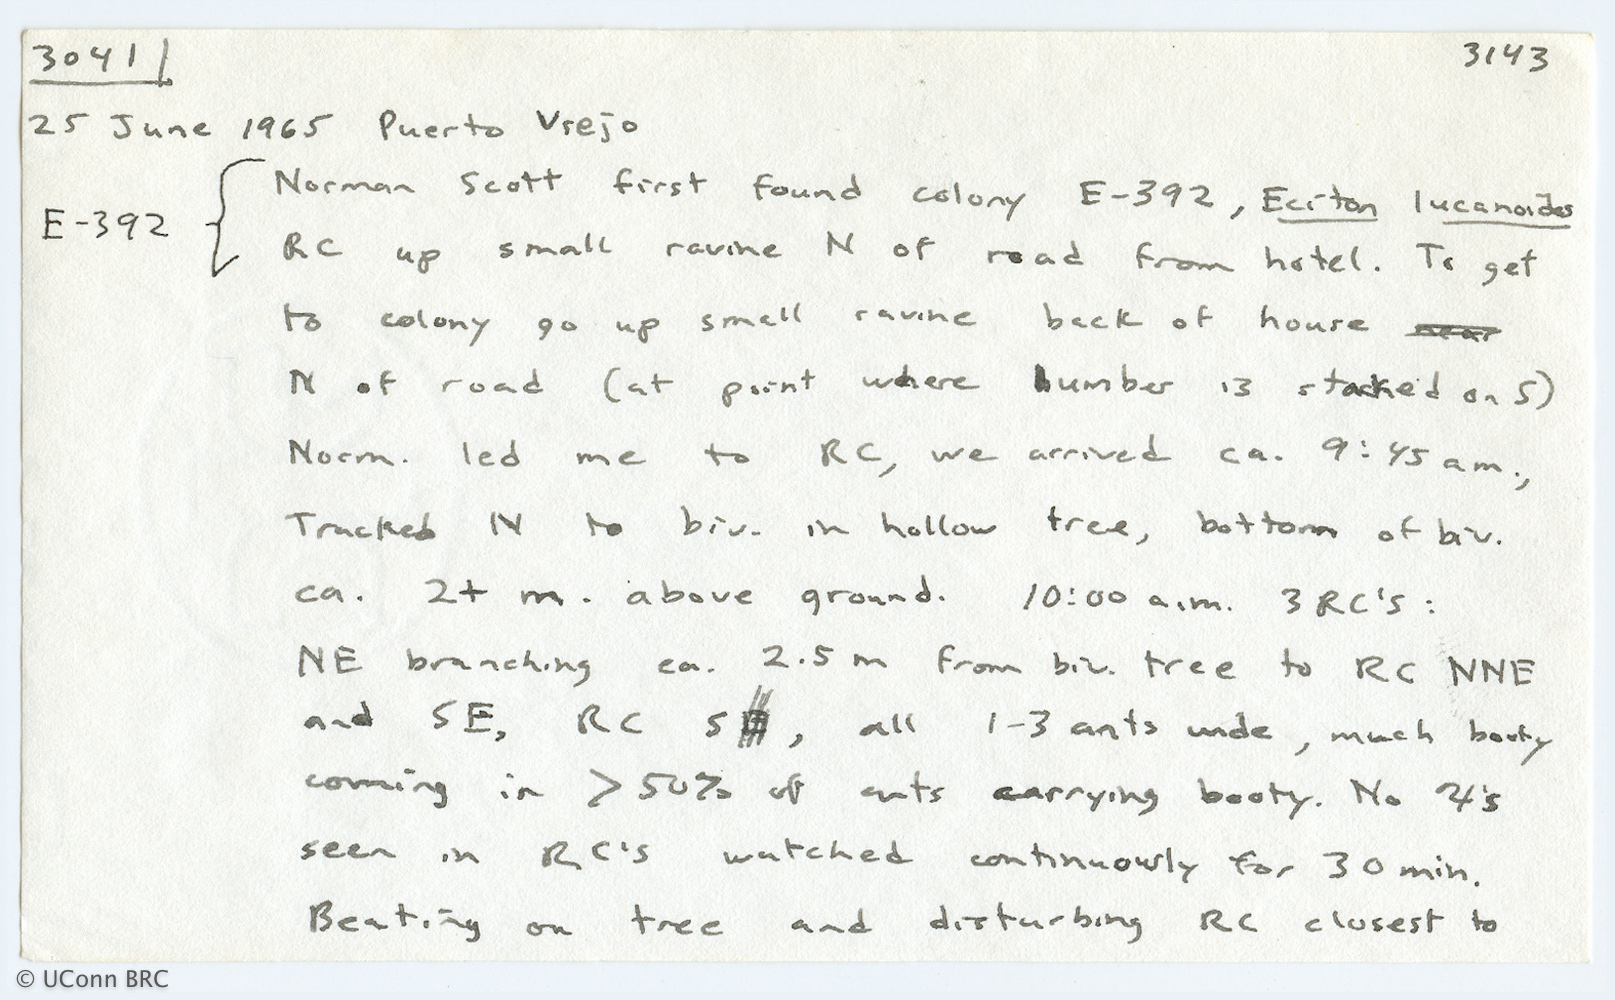 3041 3143
25 June 1965 Puerto Viejo
E-392 { Norman Scott first found colony E-392, Eciton lucanoides
RC up small ravine N of road from hotel. To get
to colony go up small ravine back of house near
N of road (at point where lumber is stacked on S)
Norm. led me to RC, we arrived ca. 9:45 am.,
Tracked N to biv. in hollow tree, bottom of biv.
ca. 2+ m. above ground. 10:00 a.m. 3 RC's:
NE branching ca. 2.5 m from biv. tree to RC NNE
and SE, RC S, all 1-3 ants wide, much booty
coming in >50% of ants carrying booty. No ♃'s
seen in RC's watched continuously for 30 min.
Beating on tree and disturbing RC closest to
© UConn BRC